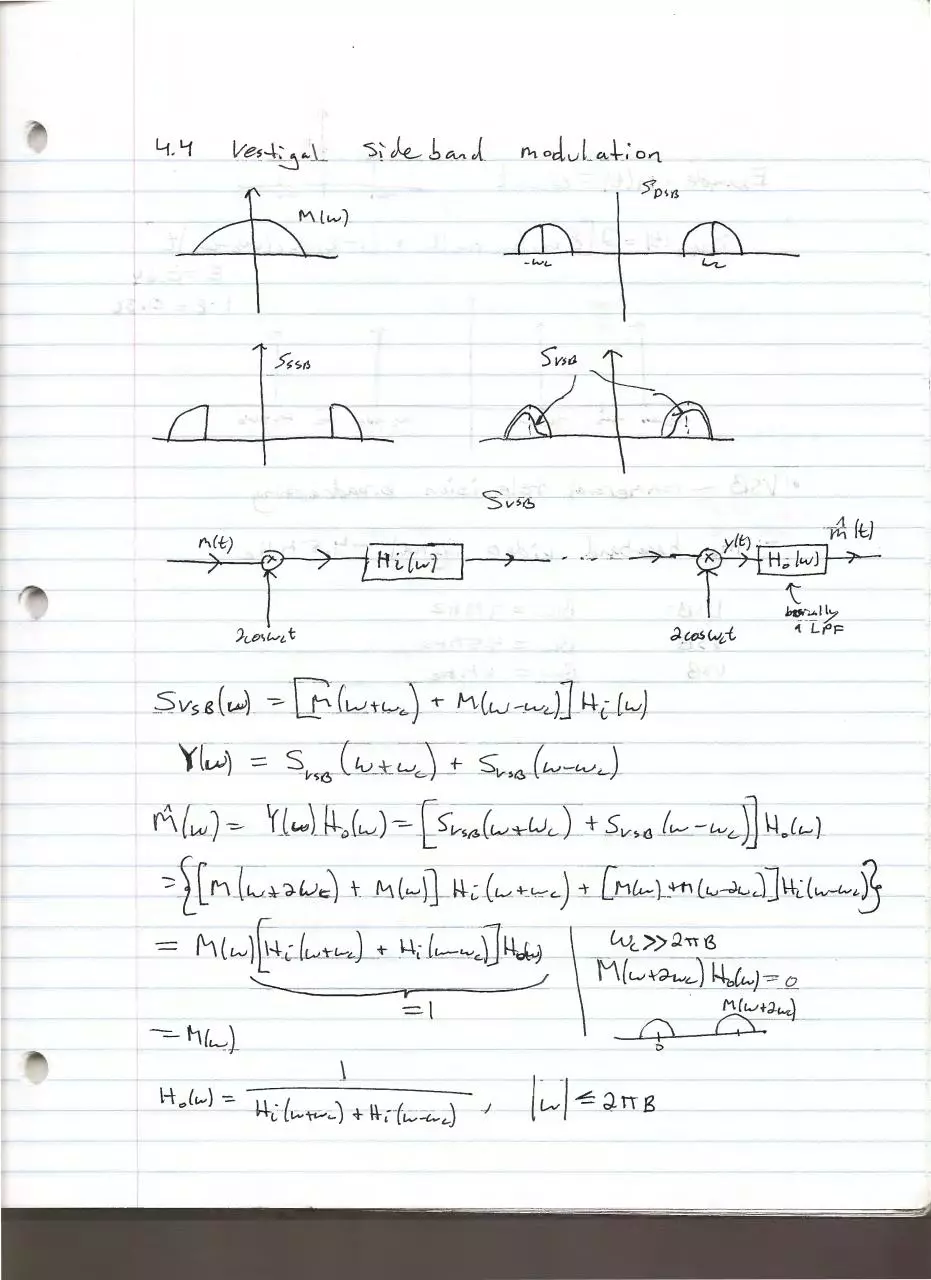 4.4 Vestigal Side band modulation
M(ω)
S_DSB
-ωc
ωc
S_SSB
S_VSB
S_VSB
m(t)
×
Hi(ω)
. . . .
×
y(t)
Ho(ω)
m̂(t)
2cosωct
2cosωct
basically
a LPF
S_VSB(ω) = [M(ω+ωc) + M(ω-ωc)] Hi(ω)
Y(ω) = S_VSB(ω+ωc) + S_VSB(ω-ωc)
M̂(ω) = Y(ω) Ho(ω) = [S_VSB(ω+ωc) + S_VSB(ω-ωc)] Ho(ω)
= {[M(ω+2ωc) + M(ω)] Hi(ω+ωc) + [M(ω)+M(ω-2ωc)] Hi(ω-ωc)}
= M(ω)[Hi(ω+ωc) + Hi(ω-ωc)] Ho(ω)
= 1
ωc >> 2πB
M(ω+2ωc) Ho(ω) = 0
M(ω+2ωc)
0
= M(ω)
Ho(ω) = 1 / (Hi(ω+ωc) + Hi(ω-ωc)) , |ω| ≤ 2πB